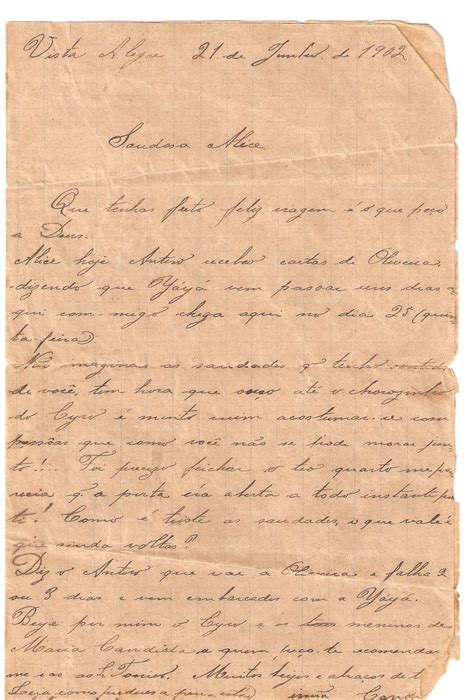 Vista Alegre 21 de Junho de 1902
Saudosa Alice
Que tenhas feito feliz viagem é o que peço
a Deus.
Alice hoje Antero recebeu cartas de Oliveira,
dizendo que Yáyá vem passar uns dias a
qui com migo chega aqui no dia 25 (quin
ta feira)
Não imaginas as saudades q tenho
de você, tem hora que ouço até o chorozinho
do Cyro é muito ruim acostumar-se com
pessôas que como você não se pode morar jun
to!... Foi precizo feichar o teu quarto me pa
recia q a porta éra aberta a todo instante por
ti! Como é triste as saudades, o que vale é
que ainda voltas!
Diz o Antero que vae a Oliveira e falha 2
ou 3 dias e vem embarcados com a Yáyá.
Beije por mim o Cyro e os meninos de
Maria Candida a quem, peço, te recomenda
me e ao Tonico. Muitos beijos e abraços de t
Leia como puderes a pena está irmã